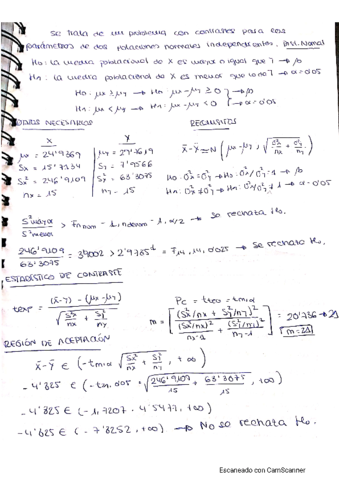 Se trata de un problema con contrastes para los
parámetros de dos poblaciones normales independientes. Dist. Normal
Ho: la media poblacional de X es mayor o igual que Y → p
Hn: la media poblacional de X es menor que Y → α=0'05
Ho: μx ≥ μy → Ho: μx - μy ≥ 0 → p
Hn: μx < μy → Hn: μx - μy < 0 → α=0'05
DATOS NECESARIOS
REQUISITOS
X
Y
μx = 24'9369
Sx = 15'7134
Sx² = 246'9109
nx = 15
Sy = 7'9566
Sy² = 63'3075
n = 15
X̄-Ȳ ≈ N (μx-μy, √(Sx²/nx + Sy²/ny))
Ho: σx² = σy² → Ho: σx²/σy² = 1 → p
Hn: σx² ≠ σy² → Hn: σx²/σy² ≠ 1 → α=0'05
S²mayor / S²menor > F nnum - 1, ndenom - 1, α/2 → Se rechaza Ho.
246'9109 / 63'3075 = 3'9002 > 2'9786 = F14, 14, 0'025 → Se rechaza Ho.
ESTADÍSTICO DE CONTRASTE
texp = ((x̄-ȳ) - (μx-μy)) / √(Sx²/nx + Sy²/ny)
Pc = tteo = tm,α
m = [Sx²/nx + Sy²/ny]² / ((Sx²/nx)²/(nx-1) + (Sy²/ny)²/(ny-1)) = 20'736 → 21
m=21
REGIÓN DE ACEPTACIÓN
X̄-Ȳ ∈ (-tm,α √(Sx²/nx + Sy²/ny), +∞)
-4'825 ∈ (-tm, 0'05 · √(246'9109/15 + 63'3075/15), +∞)
-4'825 ∈ (-1,7207 · 4'5477, +∞)
-4'825 ∈ (-7'8252, +∞) → No se rechaza Ho.
Escaneado con CamScanner